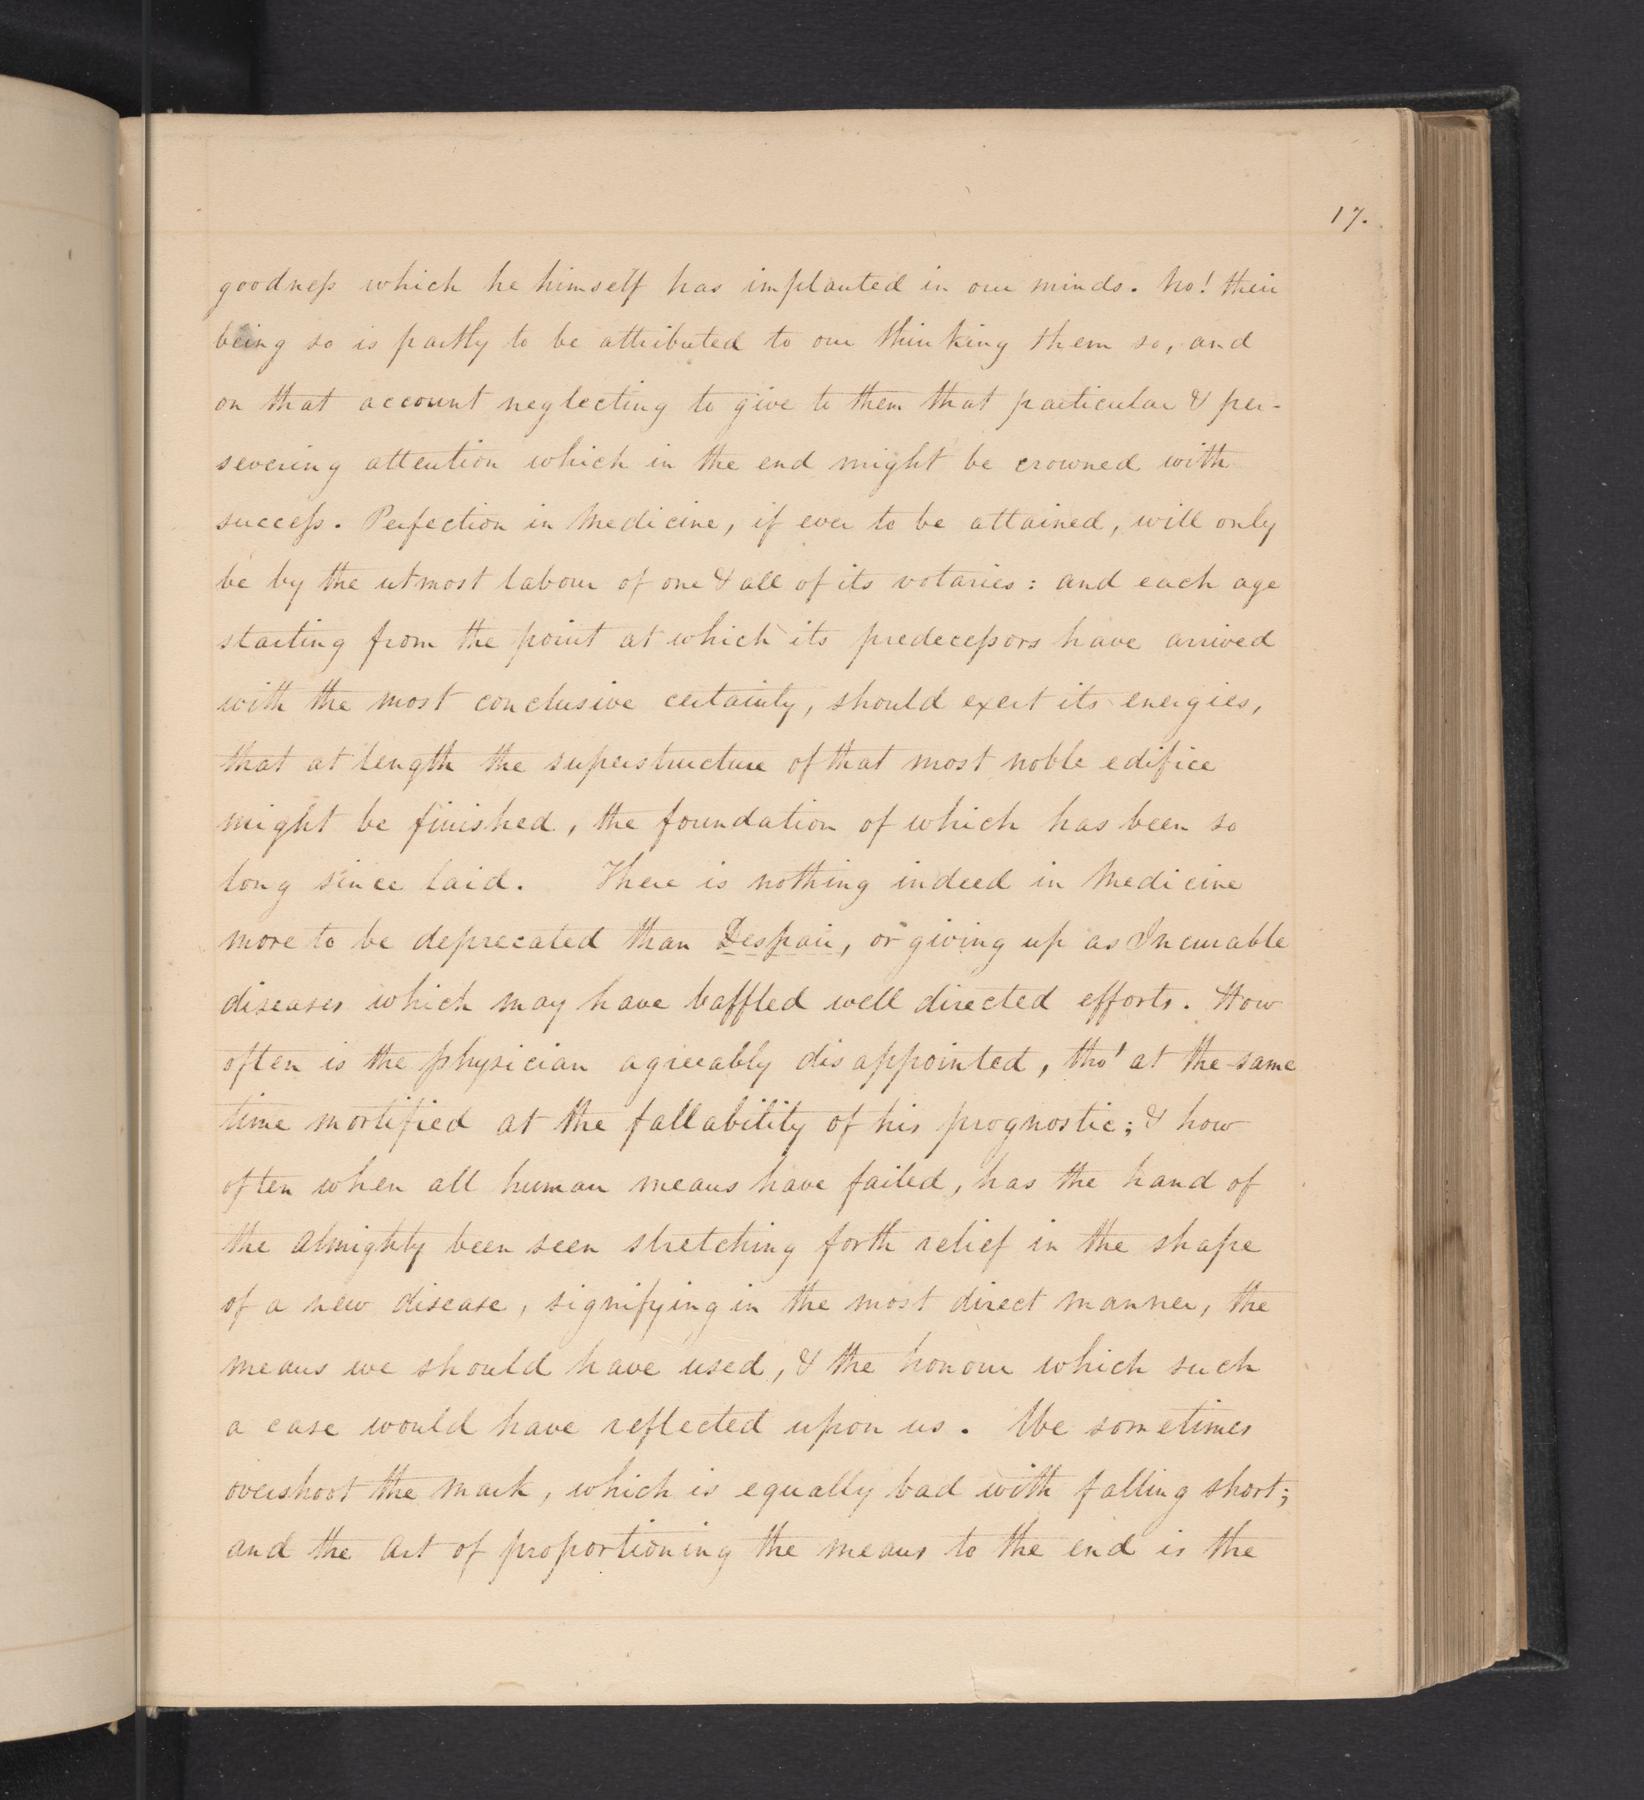 17.
goodneſs which he himself has implanted in our minds. No! their
being so is partly to be attributed to our thinking them so, and
on that account neglecting to give to them that particular & per-
severing attention which in the end might be crowned with
succeſs. Perfection in Medicine, if ever to be attained, will only
be by the utmost labour of one & all of its votaries: and each age
starting from the point at which its predeceſsors have arrived
with the most conclusive certainty, should exert its energies,
that at length the superstructure of that most noble edifice
might be finished, the foundation of which has been so
long since laid. There is nothing indeed in Medicine
more to be deprecated than Despair, or giving up as Incurable
diseases which may have baffled well directed efforts. How
often is the physician agreeably disappointed, tho' at the same
time mortified at the fallability of his prognostic; & how
often when all human means have failed, has the hand of
the Almighty been seen stretching forth relief in the shape
of a new disease, signifying in the most direct manner, the
means we should have used, & the honour which such
a case would have reflected upon us. We sometimes
overshoot the mark, which is equally bad with falling short;
and the art of proportioning the means to the end is the